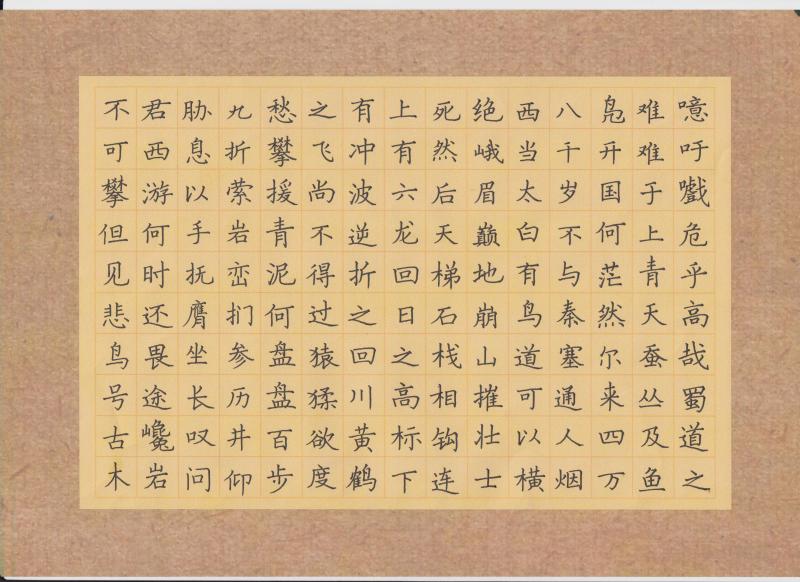 噫吁嚱危乎高哉蜀道之
难难于上青天蚕丛及鱼
凫开国何茫然尔来四万
八千岁不与秦塞通人烟
西当太白有鸟道可以横
绝峨眉巅地崩山摧壮士
死然后天梯石栈相钩连
上有六龙回日之高标下
有冲波逆折之回川黄鹤
之飞尚不得过猿猱欲度
愁攀援青泥何盘盘百步
九折萦岩峦扪参历井仰
胁息以手抚膺坐长叹问
君西游何时还畏途巉岩
不可攀但见悲鸟号古木